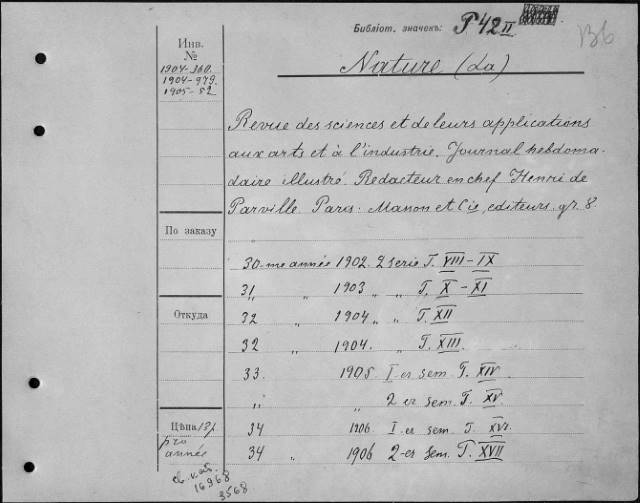 Библіот. значекъ: P42 II
Bb
Инв.
№
1904-360.
1904-979.
1905-52
Nature (La)
Revue des sciences et de leurs applications
aux arts et à l'industrie. Journal hebdoma-
daire illustré. Redacteur en chef Henri de
Parville. Paris. Masson et Cie, editeurs. gr. 8.
По заказу
30-me année 1902. 2 serie T. VIII-IX
31 „ „ 1903 „ „ T. X-XI
Откуда
32 „ 1904 „ „ T. XII
32 „ 1904. T. XIII.
33. 1905. I-er sem. T. XIV.
„ „ 2 er sem. T. XV.
Цѣна
34 1906. I-er sem. T. XVI.
pro
année
34 „ 1906 2-er Sem. T. XVII
16968
3568